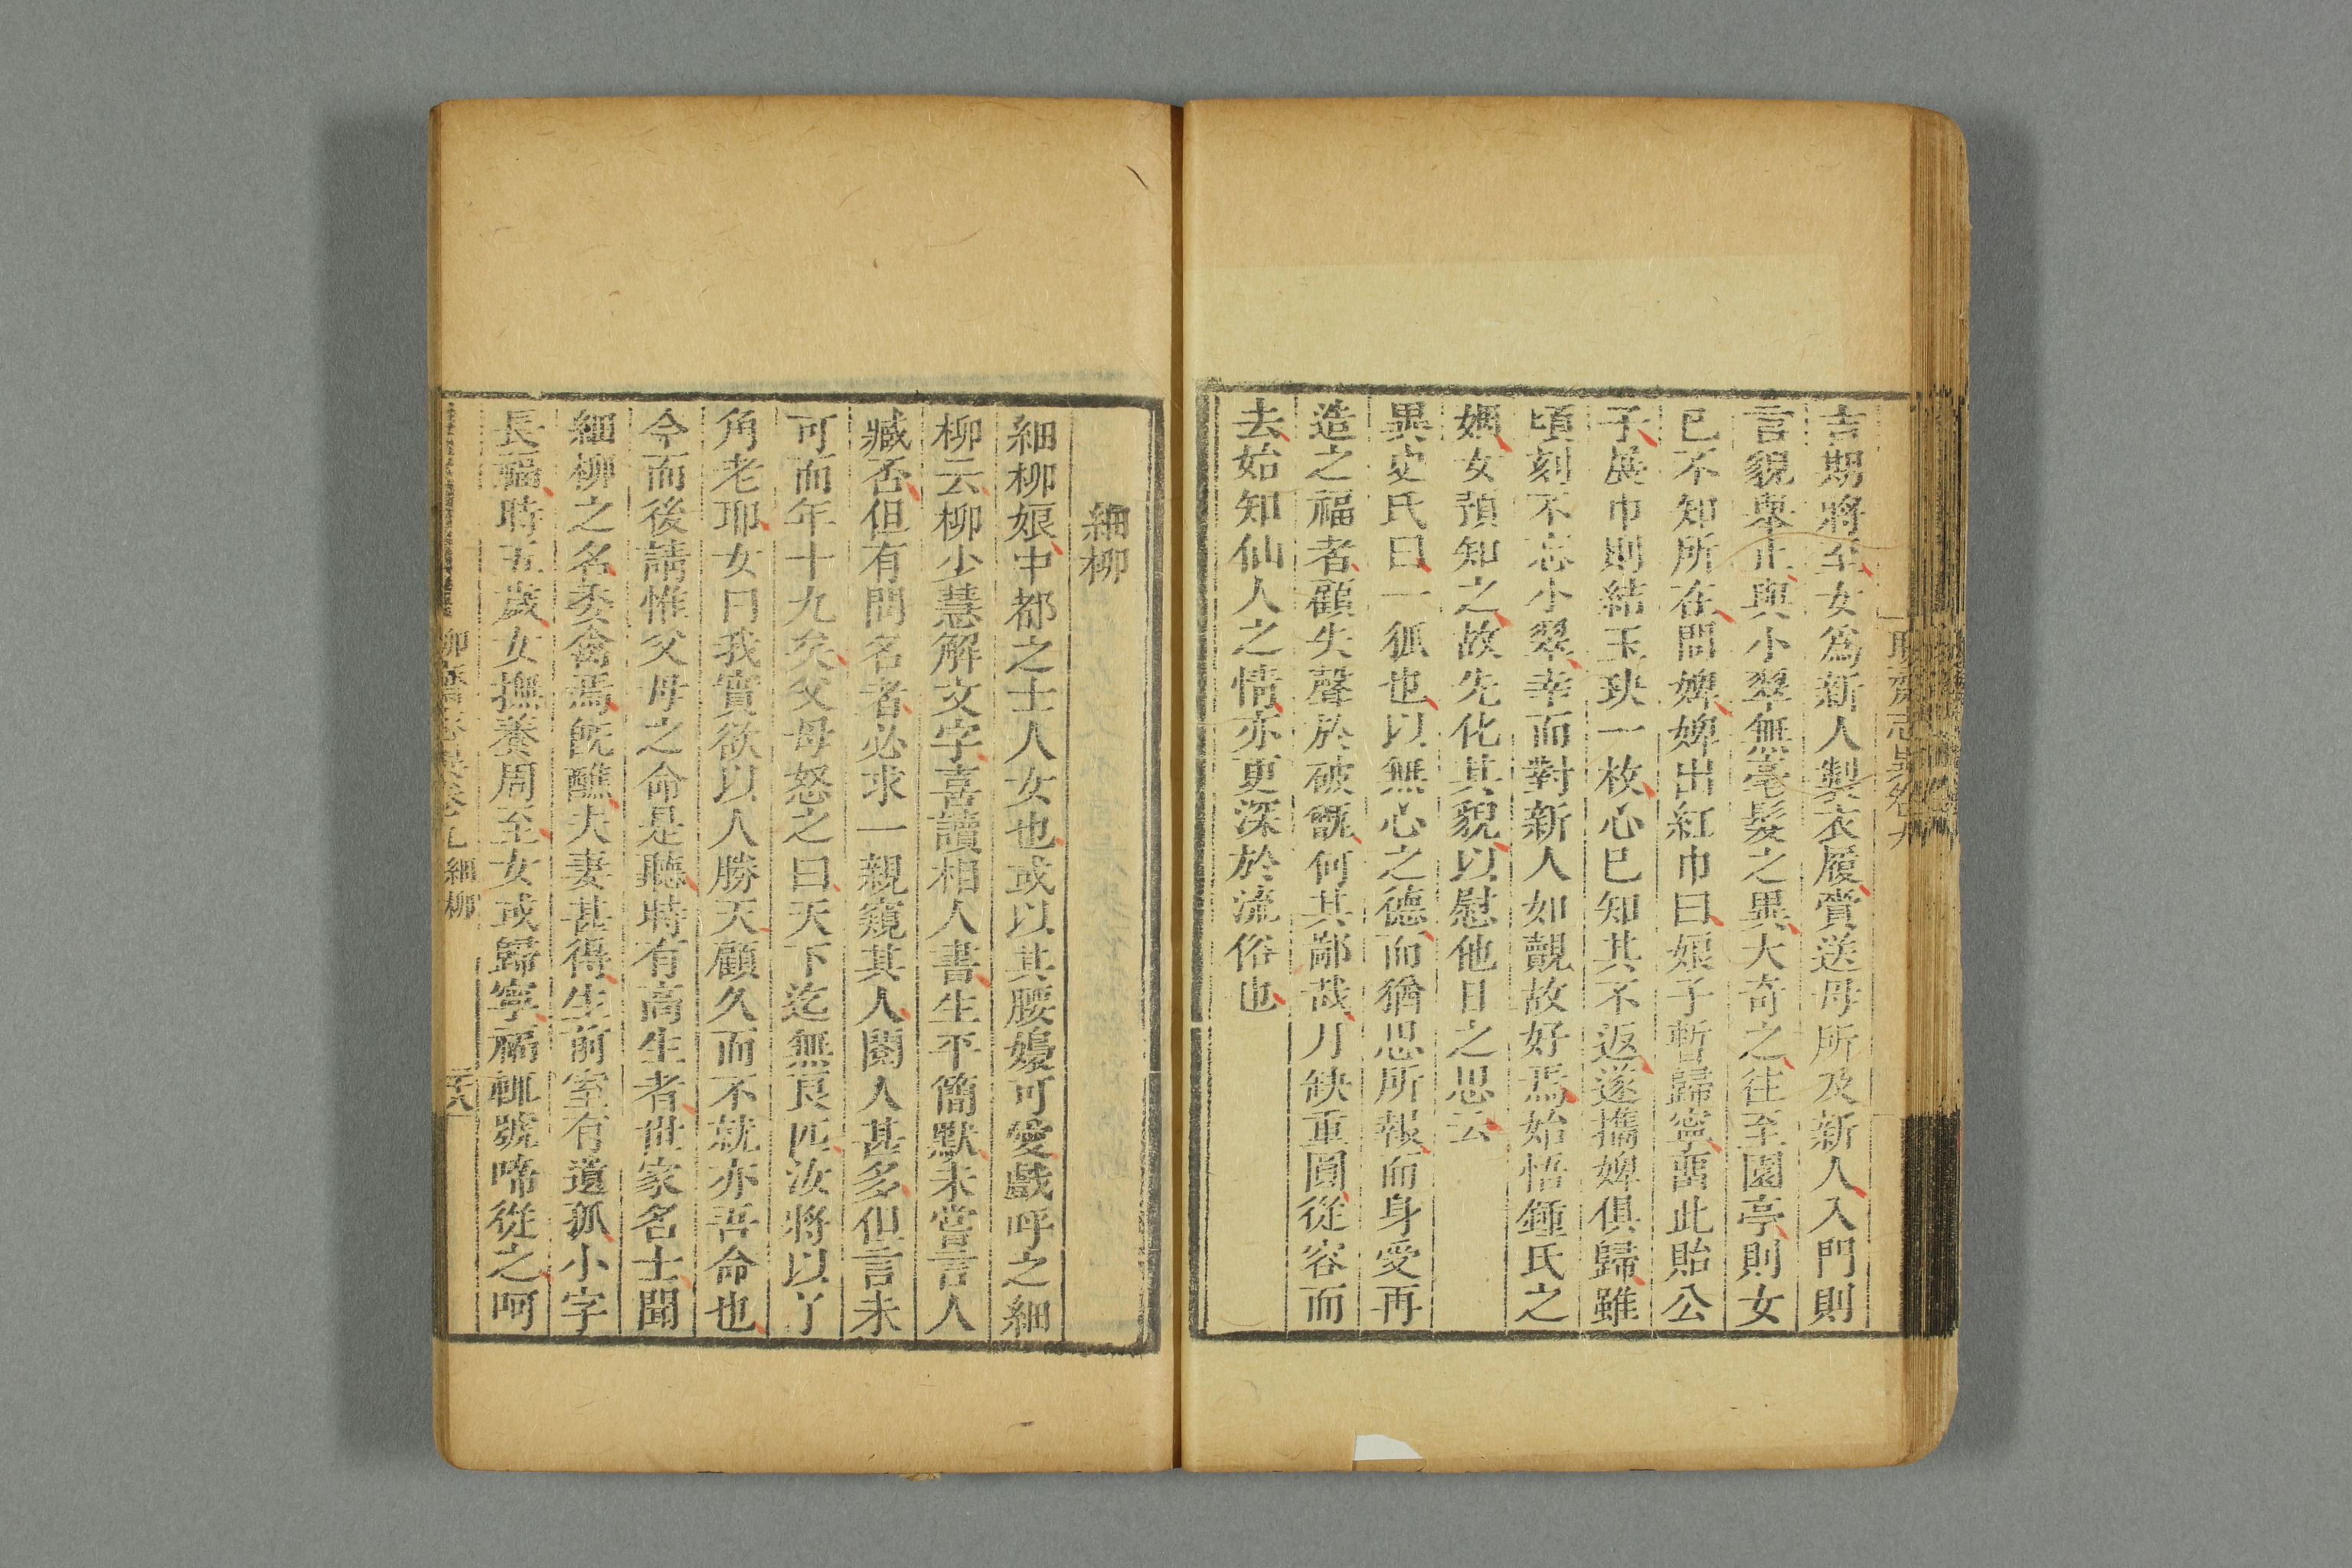 吉期將至女為新人製衣履賫送母所及新人入門則
言貌舉止與小翠無毫髮之異大奇之往至園亭則女
已不知所在問婢婢出紅巾曰娘子暫歸寧畱此貽公
子展巾則結玉玦一枚心已知其不返遂攜婢俱歸雖
頃刻不忘小翠幸而對新人如覿故好焉始悟鍾氏之
姻女預知之故先化其貌以慰他日之思云
異史氏曰一狐也以無心之德而猶思所報而身受再
造之福者顧失聲於破甑何其鄙哉月缺重圓從容而
去始知仙人之情亦更深於流俗也
細柳
細柳娘中都之士人女也或以其腰嫋可愛戲呼之細
柳云柳少慧解文字喜讀相人書生平簡默未嘗言人
臧否但有問名者必求一親窺其人閱人甚多但言未
可而年十九矣父母怒之曰天下迄無良匹汝將以丫
角老耶女曰我實欲以人勝天顧久而不就亦吾命也
今而後請惟父母之命是聽時有高生者世家名士聞
細柳之名委禽焉旣醮夫妻甚得生前室有遺孤小字
長福時五歲女撫養周至女或歸寧福輒號啼從之呵
聊齋志異卷九 細柳